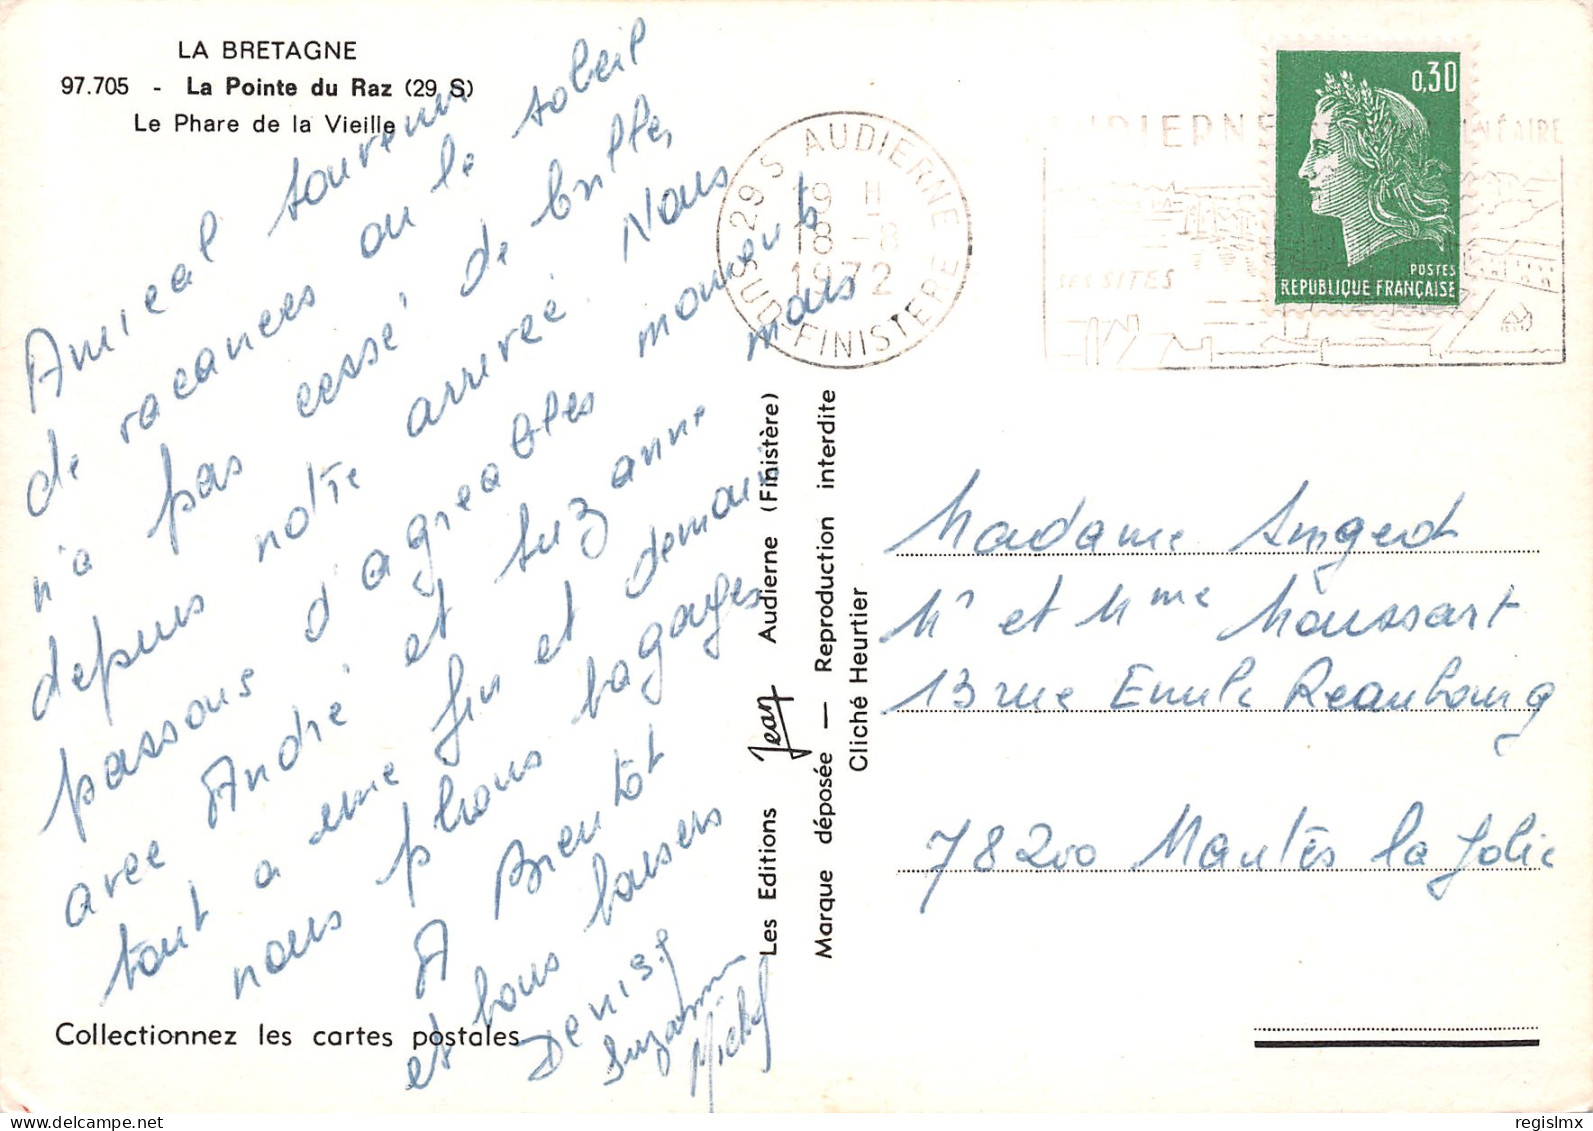 LA BRETAGNE
97.705 - La Pointe du Raz (29 S)
Le Phare de la Vieille
Amical souvenir
de vacances ou le soleil
n'a pas cessé de briller
depuis notre arrivée Nous
passons d'agreables moments
avec André et Suzanne mais
tout a une fin et demain
nous plions bagages
A Bientôt
et bons baisers
Denise
Suzanne
Michel
Collectionnez les cartes postales
Les Editions Jean Audierne (Finistère)
Marque déposée — Reproduction interdite
Cliché Heurtier
29 S AUDIERNE
19 H
18 -8
1972
SUD-FINISTERE
AUDIERNE
BALNÉAIRE
SES SITES
0,30
POSTES
REPUBLIQUE FRANÇAISE
Madame
Mr et Mme Moussart
13 rue Emile Beaubourg
78200 Mantes la Jolie